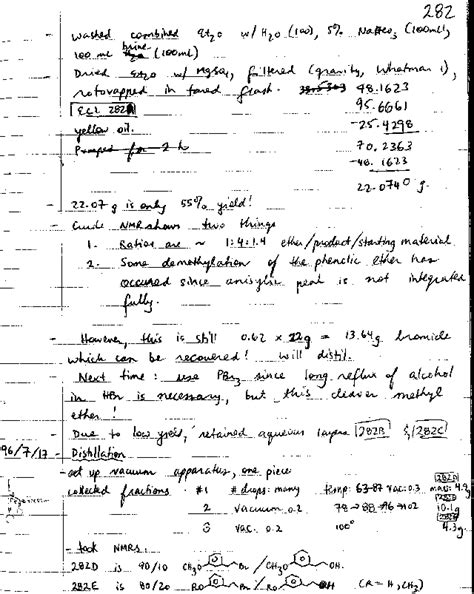 282
- Washed combined Et2O w/ H2O (100), 5% NaHCO3 (100mL),
100 mL brine (100mL)
Dried Et2O w/ MgSO4, filtered (gravity, Whatman 1),
rotovapped in tared flask. 48.1623
ECL 282A 95.6661
yellow oil. -25.4298
Pumped for 2 h 70.2363
-48.1623
22.0740 g.
- 22.07 g is only 55% yield!
- Crude NMR shows two things
1. Ratios are ~ 1:4:1.4 ether/product/starting material
2. Some demethylation of the phenolic ether has
occured since anisylic peak is not integrated
fully.
- However, this is still 0.62 x 22g = 13.64g bromide
which can be recovered! will distil.
Next time: use PBr3 since long reflux of alcohol
in HBr is necessary, but this cleaves methyl
ether!
- Due to low yield, retained aqueous layers 282B & 282C
96/7/17 - Distillation
- set up vacuum apparatus, one piece
collected fractions #1 # drops: many temp: 63-87 vac: 0.3 282D
2 vacuum 0.2 78 102 10.1g
3 vac. 0.2 100° 4.3g
- took NMRs:
282D is 90/10 CH3O Br / CH3O OH.
282E is 80/20 RO Br / RO OH (R = H, CH3)